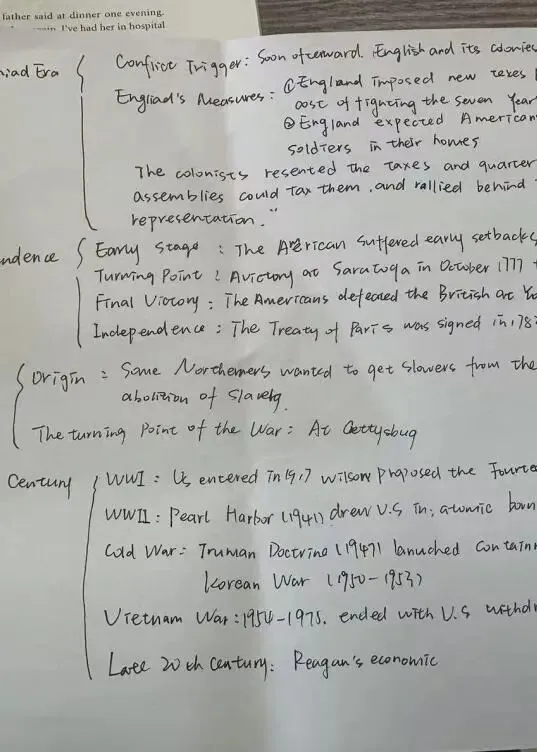 father said at dinner one evening.
I've had her in hospital
niad Era
Conflict Trigger: Soon afterward. English and its colonies
Engliad's Measures: ①England imposed new taxes
cost of fighting the Seven Year
②England expected American
soldiers in their homes
The colonists resented the taxes and quarter
assemblies could tax them, and rallied behind
representation."
ndence
Early Stage: The American suffered early setbacks
Turning Point: A victory at Saratoga in October 1777
Final Victory: The Americans defeated the British at Yo
Independence: The Treaty of Paris was signed in 178
Origin: Some Northerners wanted to get slowers from the
abolition of slavery.
The turning Point of the War: At Gettysbug
Century
WWI: Us entered in 1917 Wilson proposed the Fourte
WWII: Pearl Harbor (1941) drew U.S in; atomic bom
Cold War: Truman Doctrine (1947) lanuched Contain
Korean War (1950-1953)
Vietnam War: 1954-1975. ended with U.S withdr
Late 20th Century: Reagan's economic